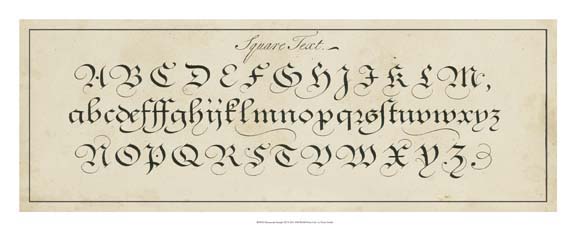 Square Text.
A B C D E F G H I J K L M,
abcdefffghijklmnopqrsſtuvwxyz
N O P Q R S T U V W X Y. Z.